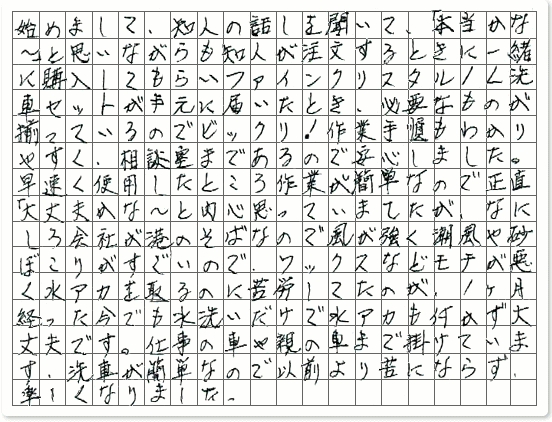 始めまして、知人の話しを聞いて、「本当かな
〜」と思いながらも知人が注文するときに一緒
に購入してもらいファインクリスタル！ん洗
車セットが手元に届いたとき、必要なものが
揃っているのでビックリ！作業手順もわかり
やすく、相談室まであるので安心しました。
早速く使用したところ作業が簡単なので正直
「大丈夫かな〜と内心思っていましたが、なに
しろ会社が港のそばなので風が強く潮風や砂
ぼこりがすごいので、ワックスなどモチが悪
く水アカを取るのに苦労してたのが、1ヶ月
経った今でも水洗いだけで水アカも付かず大
丈夫です。仕事の車や親の車まで掛けていま
す、洗車が簡単なので以前より苦にならず、
楽しくなりました。